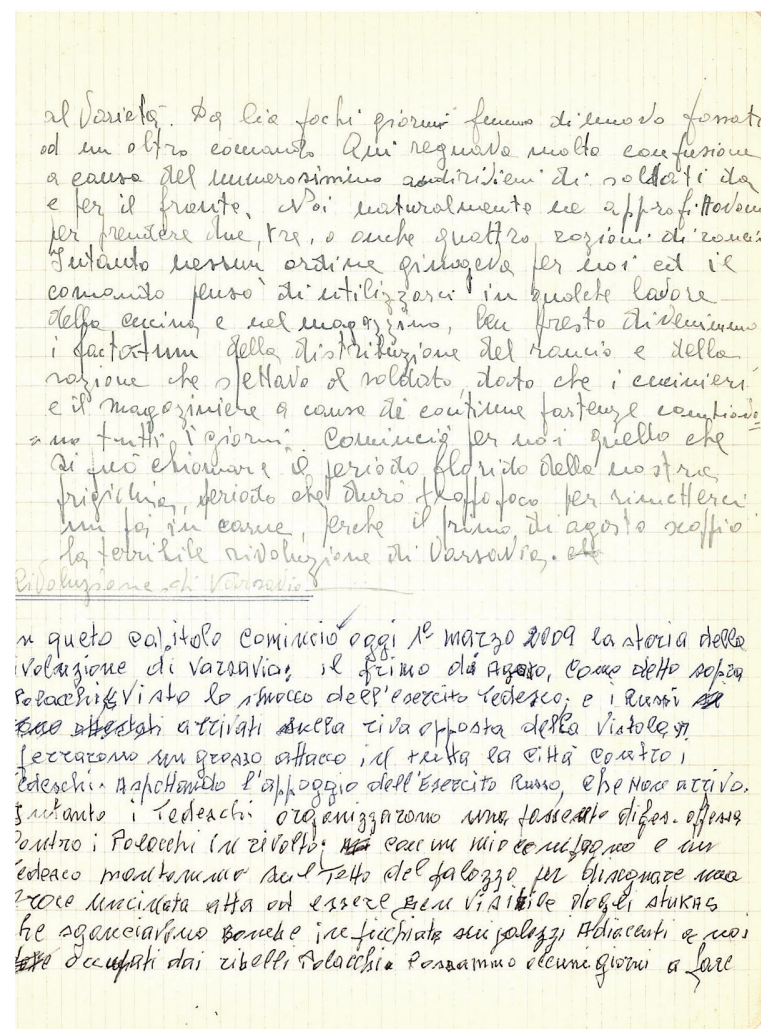 al Varietà. Da lì a pochi giorni fummo di nuovo passati
ad un altro comando. Qui regnava molta confusione
a causa del numerosissimo andirivieni di soldati da
e per il fronte. Noi naturalmente ne approfittavamo
per prendere due, tre, o anche quattro razioni di rancio
Intanto nessun ordine giungeva per noi ed il
comando pensò di utilizzarci in qualche lavoro
della cucina e nel magazzino, ben presto divenimmo
i factotum della distribuzione del rancio e della
razione che spettava al soldato, dato che i cucinieri
e il magaziniere a causa di continue partenze cambiava=
=no tutti i giorni. Cominciò per noi quello che
si può chiamare il periodo florido della nostra
prigionia, periodo che durò troppo poco per rimetterci
un poi in carne, perche il primo di agosto scoppiò
la terribile rivoluzione di Varsavia.
Rivoluzione di Varsavia
n queto capitolo comincio oggi 1º marzo 2009 la storia della
ivoluzione di Varsavia; il primo di Agosto, come detto sopra
Polacchi visto lo smacco dell'esercito Tedesco; e i Russi
arrivati sulla riva opposta della Vistola,
ferrarono un grosso attacco in tutta la città contro i
edeschi. Aspettando l'appoggio dell'Esercito Russo, che non arrivo.
Intanto i Tedeschi organizzarono una possente difes. offesa
ontro i Polacchi in rivolta; con un mio compagno e un
edesco montammo sul Tetto del palazzo per disegnare una
roce uncinata atta ad essere ben visibile dagli stukas
he sganciavano bombe in picchiata sui palazzi Adiacenti a noi
occupati dai ribelli Polacchi. Passammo alcuni giorni a fare